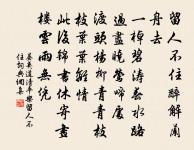 留人不住醉解蘭
舟去
一棹碧濤春水路
過盡曉鶯啼處
渡頭楊柳青青枝
枝葉葉離情
此後錦書休寄畫
樓雲雨無憑
晏幾道清平樂留人不
住